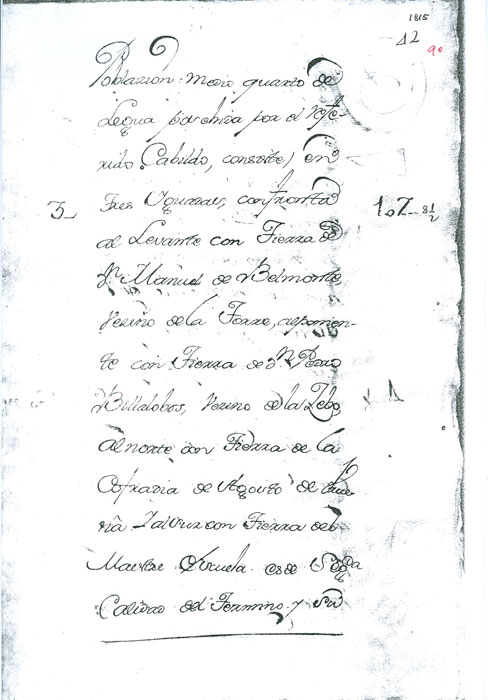 1815
12
90
Poblazion: medio quarto de
Legua por elnia por el refe-
rido Cabildo, consiste, en
3 tres Yguadas, confronta 1.7 8½
al Levante con Tierra de
Dn. Manuel de Belmonte,
Vezino de la Torre, al ponien-
te con Tierra de Dn. Pedro
Billalobos, Vezino de la Zebo, 1
al norte con Tierra de la
Cofradia de
ria Zal sur con Tierra del
Maestre Escuela es de Segda
Calidad del Termino, y su